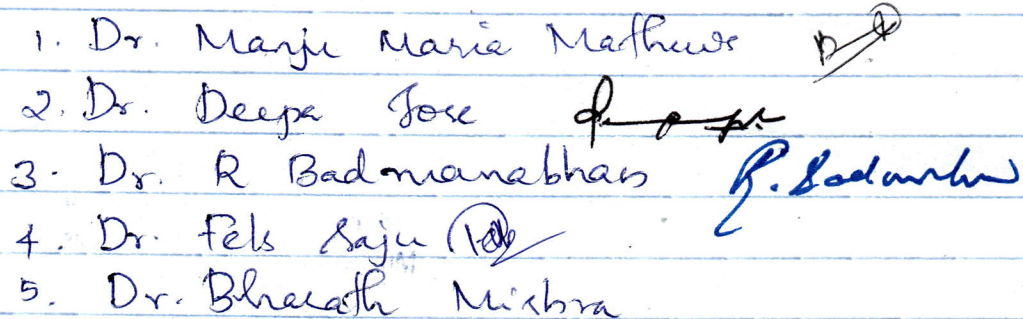 1. Dr. Manju Maria Mathews
2. Dr. Deepa Jose
3. Dr. R Badmanabhan
4. Dr. Fels Saju
5. Dr. Bharath Mishra